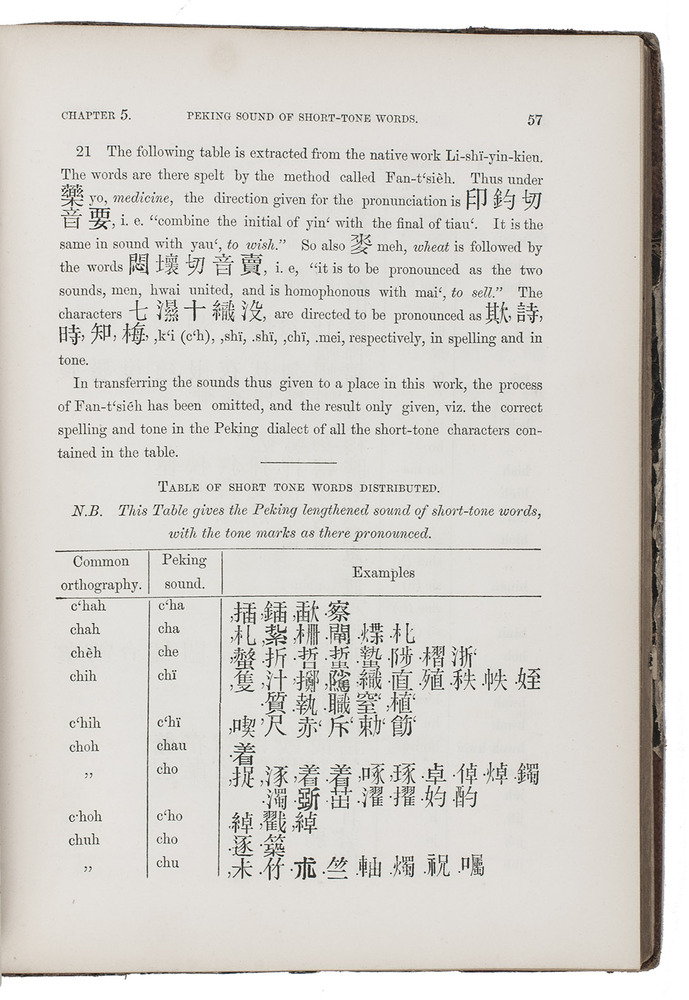 CHAPTER 5. PEKING SOUND OF SHORT-TONE WORDS. 57
21 The following table is extracted from the native work Li-shï-yin-kien.
The words are there spelt by the method called Fan-t‘sièh. Thus under
藥 yo, medicine, the direction given for the pronunciation is 印釣切
音要, i. e. “combine the initial of yin‘ with the final of tiau‘. It is the
same in sound with yau‘, to wish.” So also 麥 meh, wheat is followed by
the words 悶壞切音賣, i. e, “it is to be pronounced as the two
sounds, men, hwai united, and is homophonous with mai‘, to sell.” The
characters 七濕十織沒, are directed to be pronounced as 欺, 詩,
時, 知, 梅, ,k‘i (c‘h), ,shï, .shï, ,chï, .mei, respectively, in spelling and in
tone.
In transferring the sounds thus given to a place in this work, the process
of Fan-t‘siéh has been omitted, and the result only given, viz. the correct
spelling and tone in the Peking dialect of all the short-tone characters con-
tained in the table.
TABLE OF SHORT TONE WORDS DISTRIBUTED.
N.B. This Table gives the Peking lengthened sound of short-tone words,
with the tone marks as there pronounced.
Common orthography. Peking sound. Examples
c‘hah c‘ha ,插 ,鍤 ,㽎 .察
chah cha ,札 ,紮 .柵 .閘 .煠 .札
chĕh che .折 .哲 .蜇 .蟄 .陟 .樀 浙‘
chih chï ,隻 ,汁 .擲 ,騭 .織 .直 .殖 .秩 .帙 .姪
.質 .執 .職 窒‘ ,植‘
c‘hih c‘hï ,喫 ’尺 赤‘ 斥‘ 勅‘ 飭‘
choh chau .着
„ cho ,捉 ,涿 ,着 .着 .啄 .琢 .卓 .倬 .焯 .鐲
.濁 .斲 .茁 .濯 .擢 .妁 .酌
c·hoh c‘ho ,綽 ,戳 ’綽
chuh cho .逐 .築
„ chu .竹 .朮 .竺 .軸 .燭 .祝 .囑